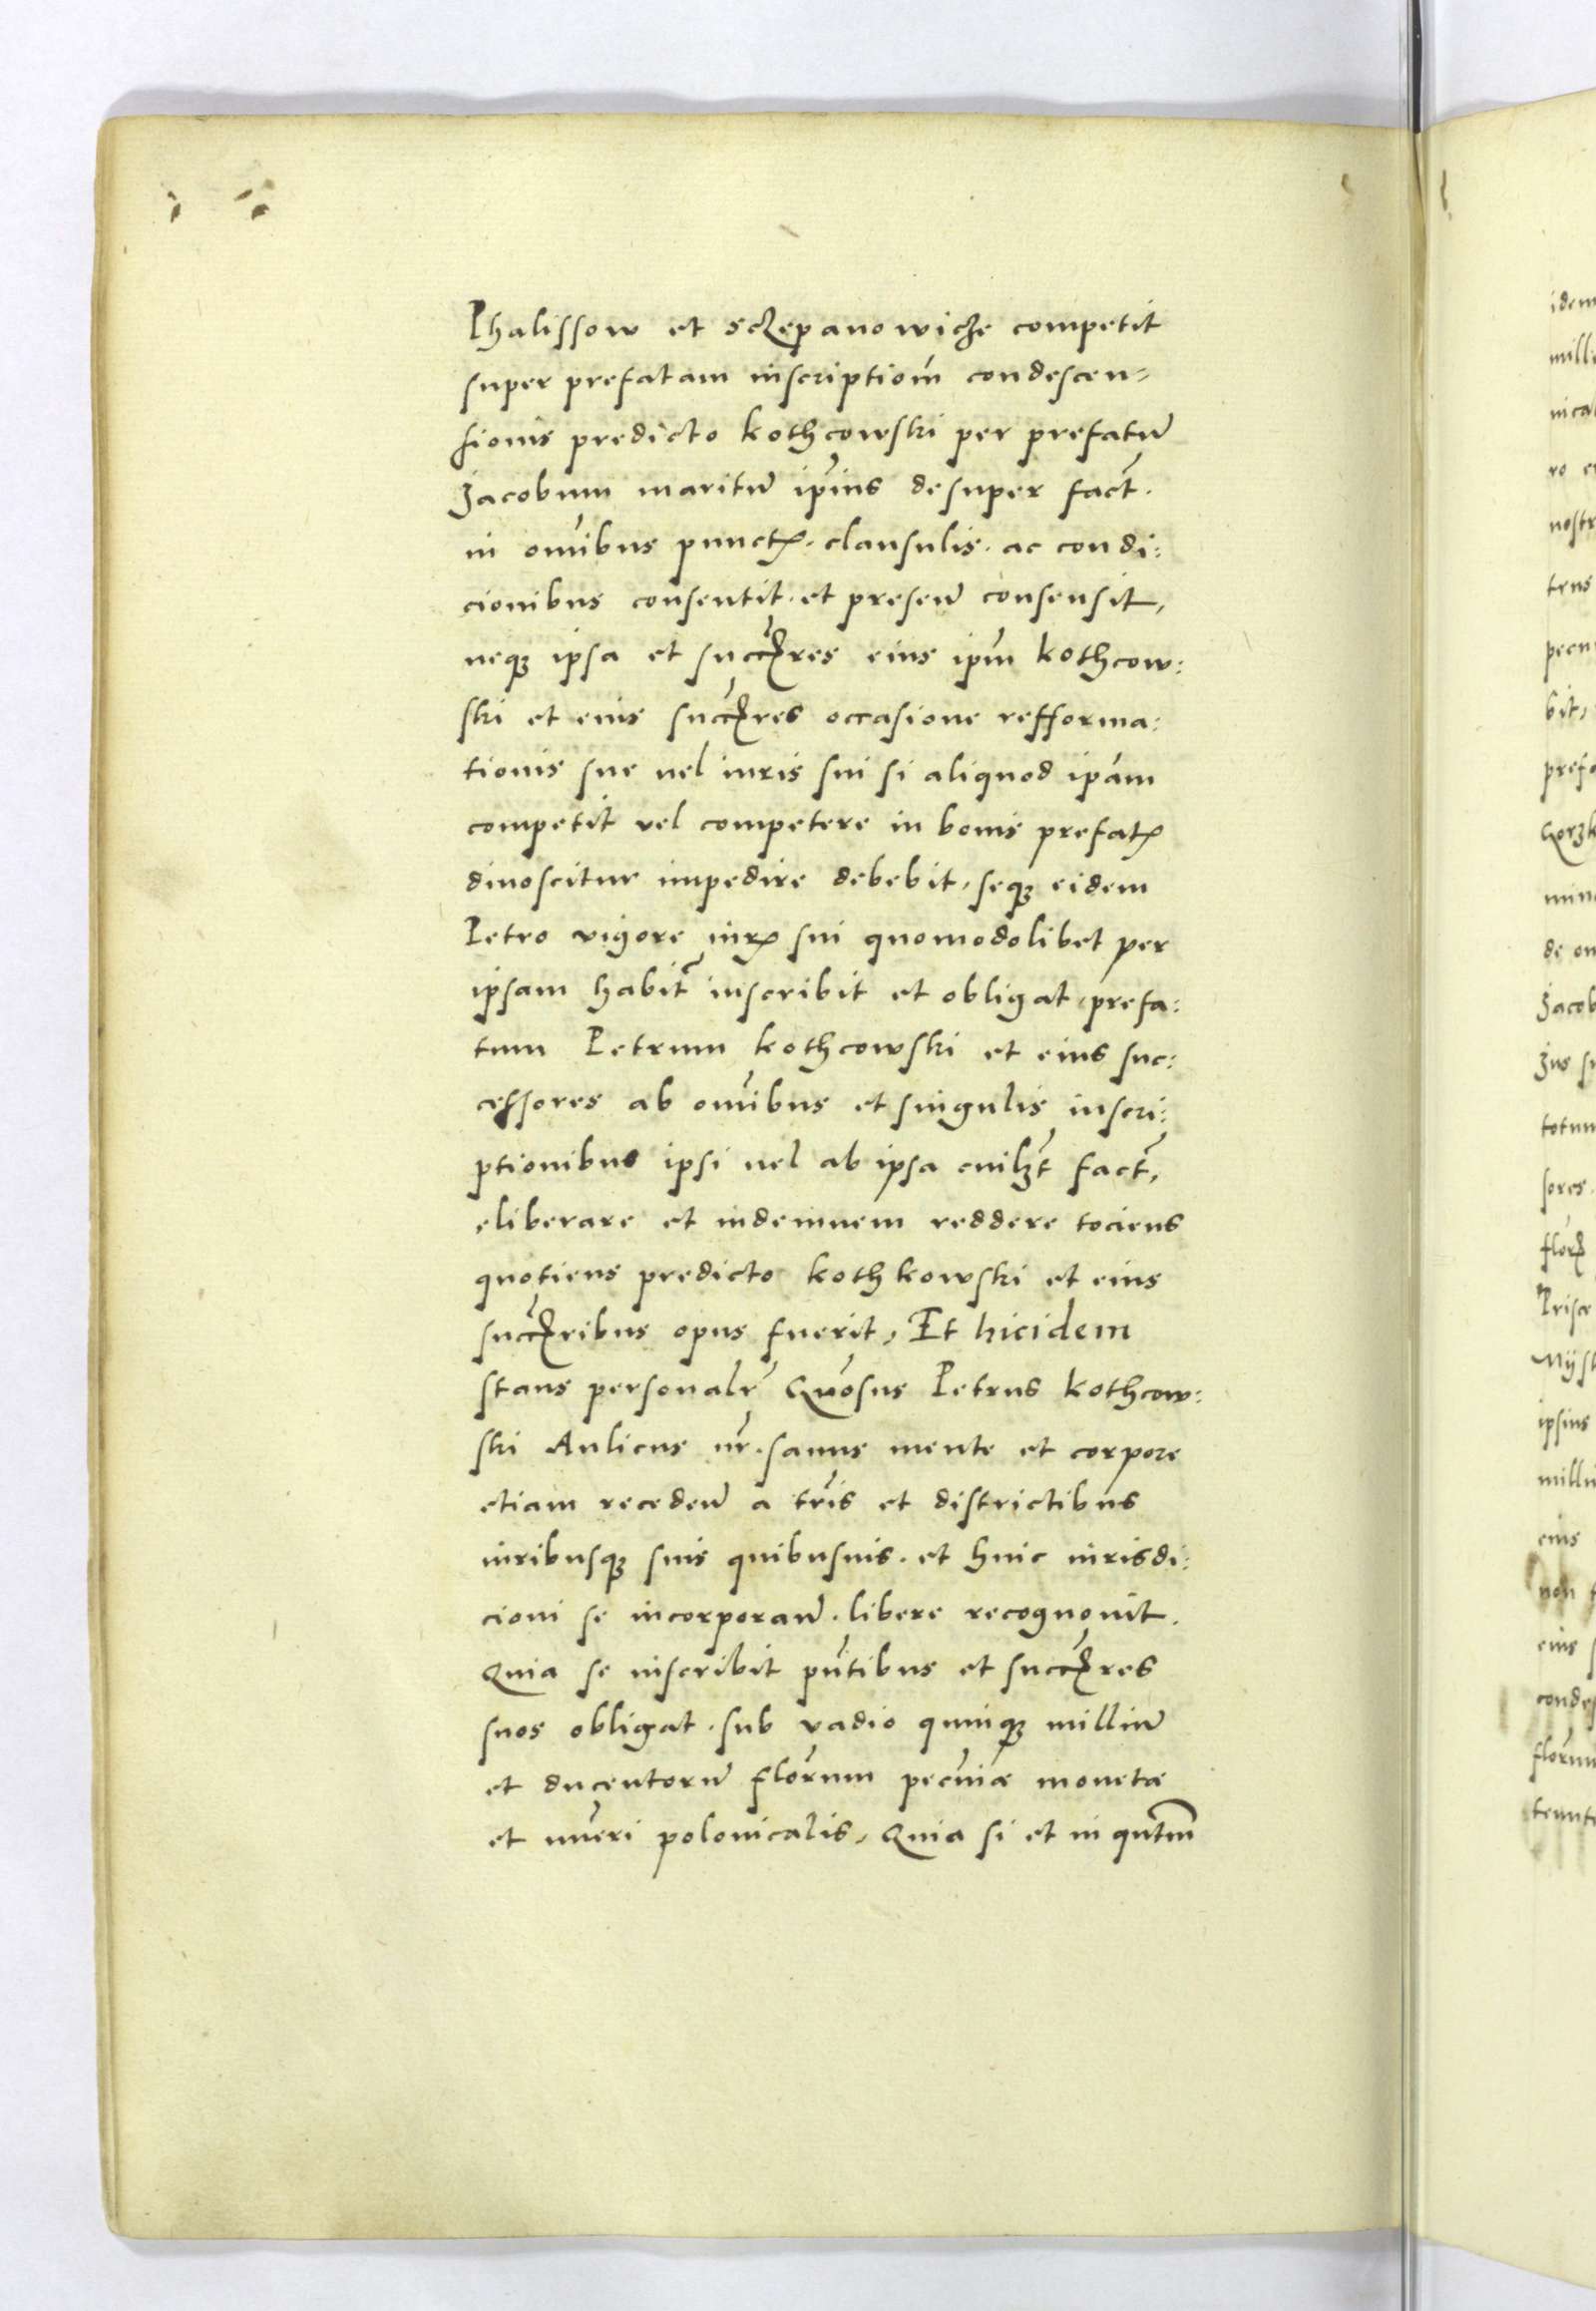 Phalissow et Sczepanowicze competit
super prefatam inscriptiom̃ condescen=
sionis predicto Kothcowski per prefatũ
Jacobum maritũ ip̃ius desuper fact̃.
in om̃ibus punctꝝ. clausulis. ac condi:
cionibus consentit. et presen̄ consensit,
neqꝫ ipsa et succ̃ꝝres eius ip̃m Kothcow:
ski et eius succ̃ꝝres occasione refforma:
tionis sue uel iuris sui si aliquod ip̃am
competit vel competere in bonis prefatꝝ
dinoscitur impedire debebit, seqꝫ eidem
Petro vigore iurꝝ sui quomodolibet per
ipsam habit̃ inscribit et obligat, prefa:
tum Petrum Kothcowski et eius suc:
cessores ab om̃ibus et singulis inscri:
ptionibus ipsi uel ab ipsa cuilꝫt fact̃,
eliberare et indemnem reddere tociens
quotiens predicto Kothkowski et eius
succ̃ꝝribus opus fuerit, Et hicidem
stans personalr̃ Gn̄osus Petrus Kothcow:
ski Aulicus nr̃. sanus mente et corpore
etiam receden̄ a tr̃is et districtibus
iuribusqꝫ suis quibusuis. et huic iurisdi:
cioni se incorporan̄. libere recognouit.
Quia se inscribit pñtibus et succ̃ꝝres
suos obligat. sub vadio quinqꝫ milliũ
et ducentorũ flor̃um pecũiæ monetæ
et nũeri polonicalis, Quia si et in qntm̃

idem
milli
nical
ro e
nostr
trus
pecu
bit,
prefa
Gorzk
de om
Jacob
Jus su
totum
sores.
florꝝ
ipsius
eius
non f
eius s
condes
flor̃um